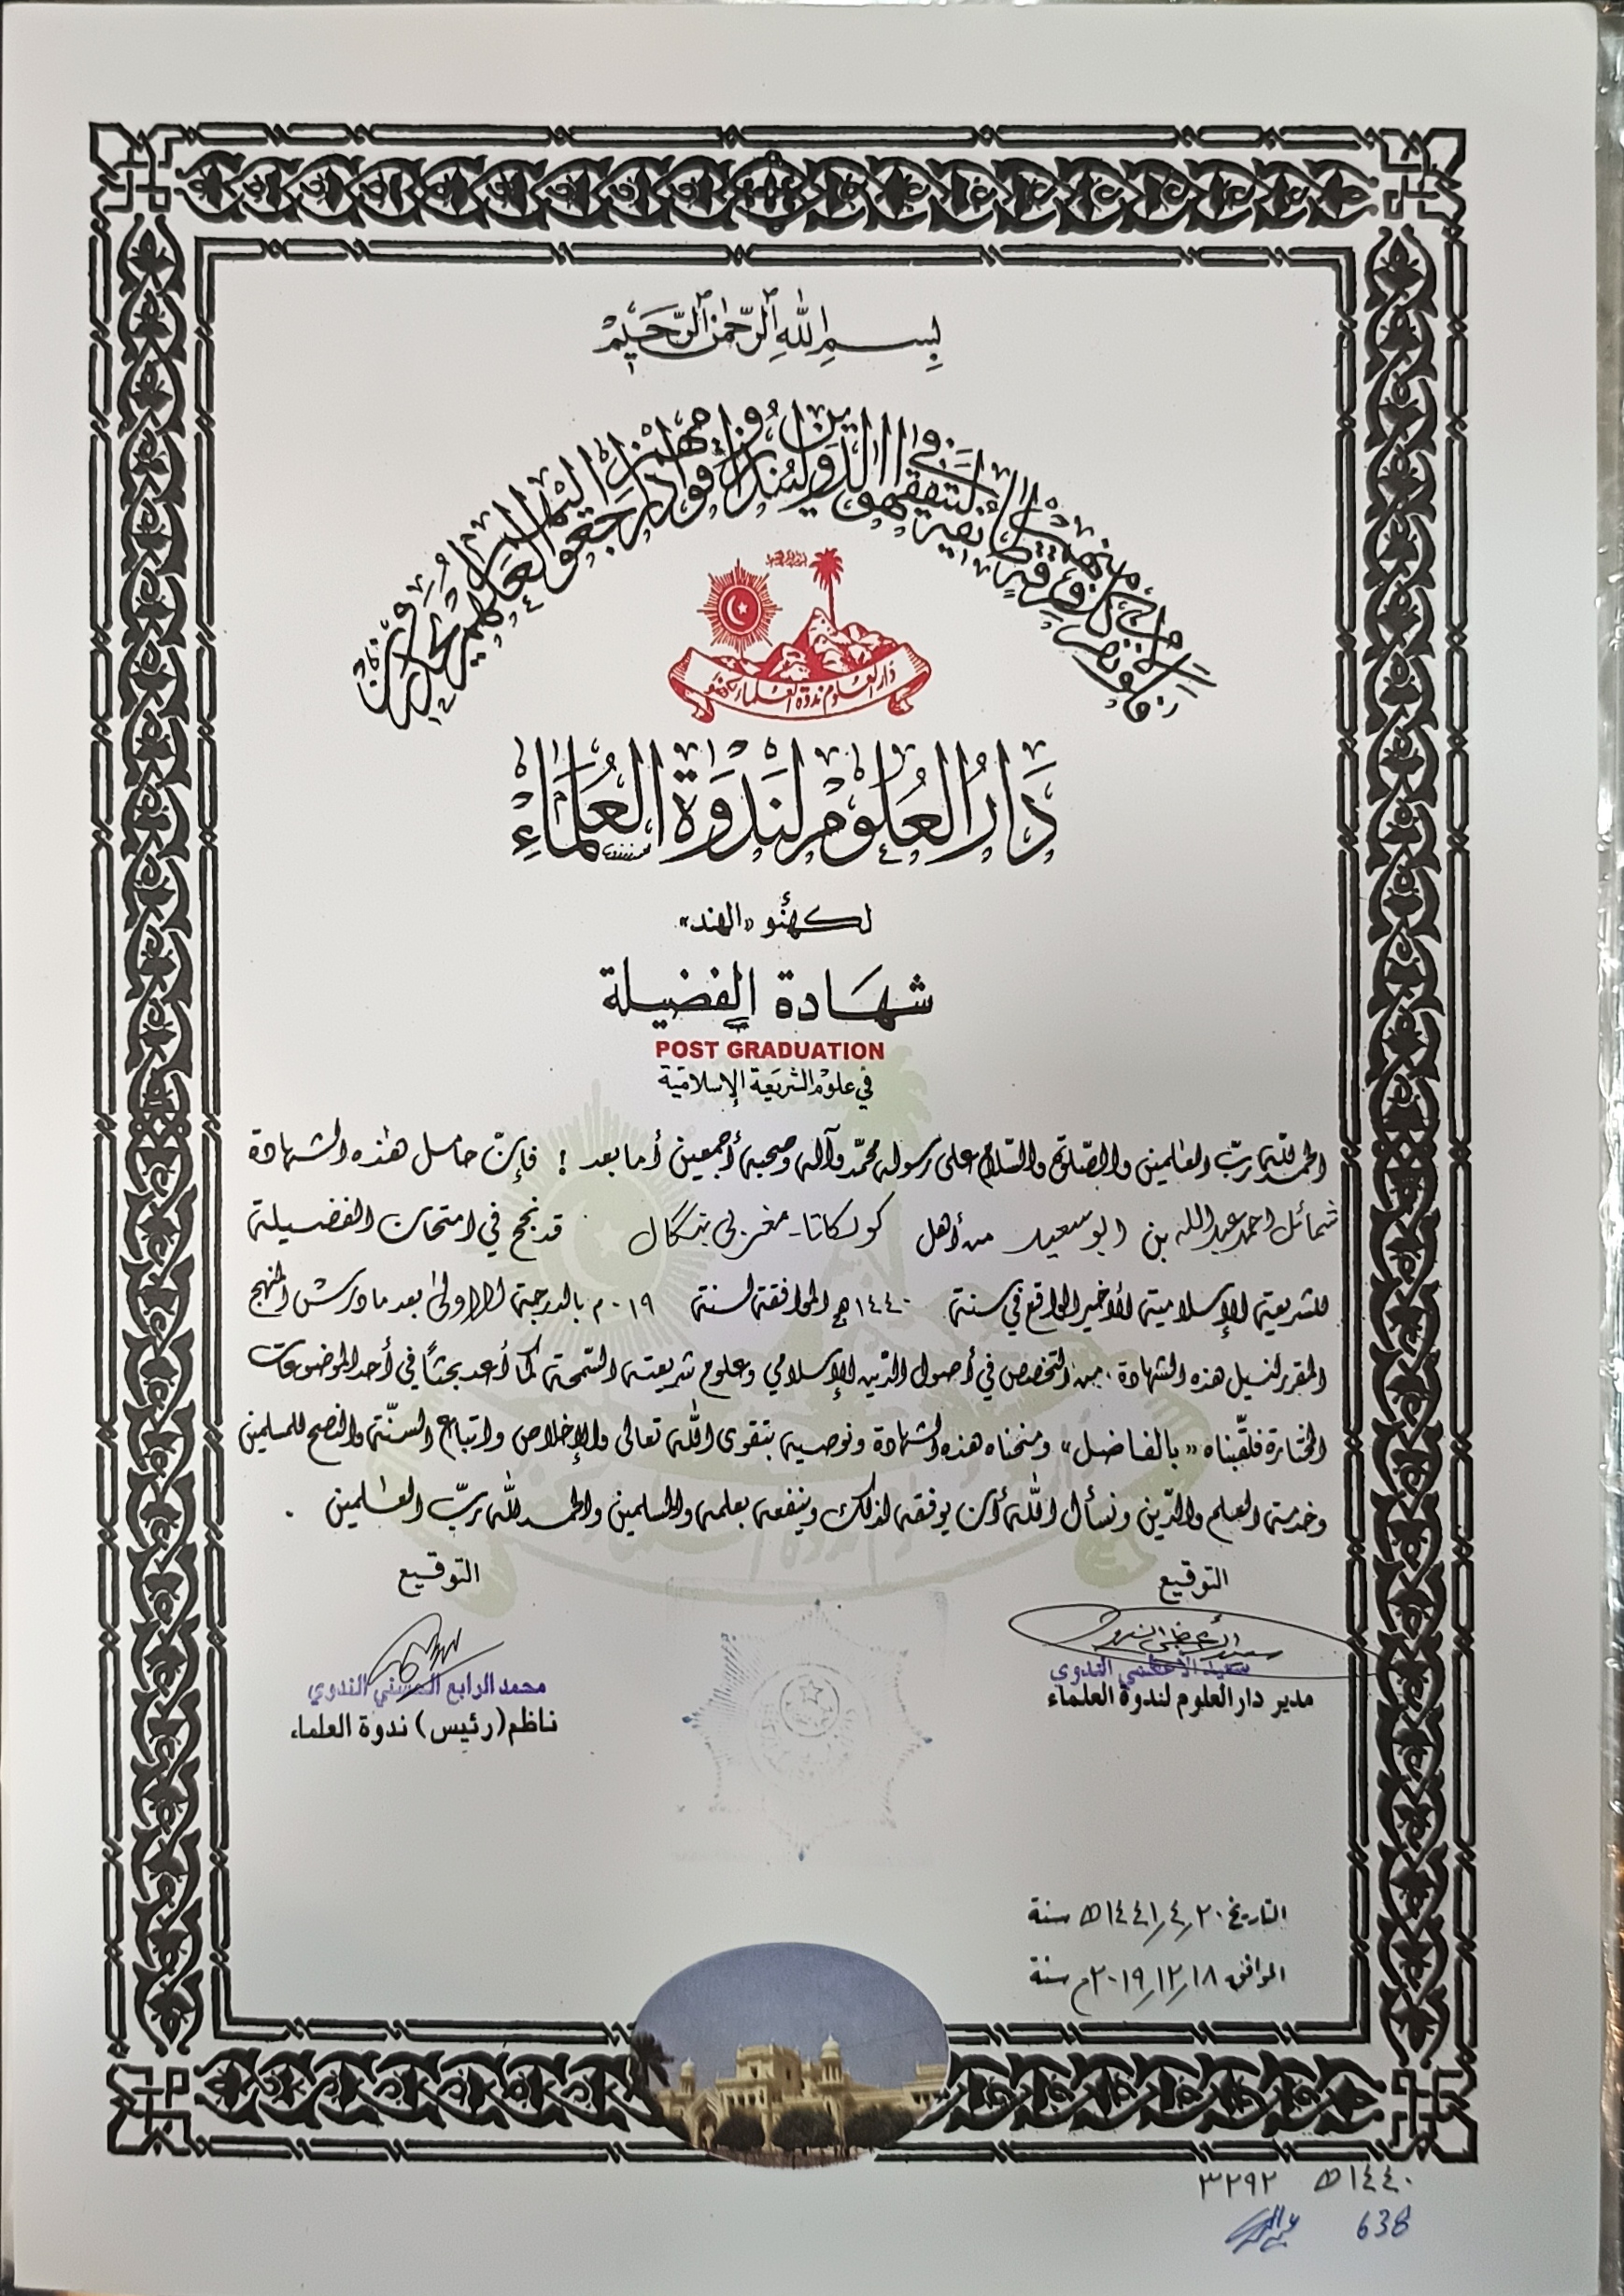 بِسْمِ اللهِ الرَّحْمٰنِ الرَّحِيْمِ
فلولا نفر من كل فرقة منهم طائفة ليتفقهوا في الدين ولينذروا قومهم إذا رجعوا إليهم لعلهم يحذرون
دار العلوم ندوة العلماء لكهنؤ
دَارُ العُلُوْم لِنَدْوَةِ العُلَمَاءِ
لكهنؤ «الهند»
شهَادة الفضيلة
POST GRADUATION
في علوم الشريعة الإسلامية
الحمد لله ربّ العٰلمين والصّلوة والسّلام على رسوله محمّد وآله وصحبه أجمعين أما بعد ! فإنّ حامل هٰذه الشهادة
شمائل احمد عبدالله بن ابو سعيد من أهل كولكاتا - مغربى بنگال قد نجح في امتحان الفضيلة
للشريعة الإسلامية الأخير الواقع في سنة ١٤٤٠ هـ الموافقة لسنة ٢٠١٩ م بالدرجة الاولىٰ بعد ما درس المنهج
المقرر لنيل هذه الشهادة . من التخصص في أصول الدّين الإسلامي وعلوم شريعته السّمحة كما أعد بحثاً في أحد الموضوعات
المختارة فلقّبناه «بالفاضل» ومنحناه هذه الشهادة ونوصيه بتقوى الله تعالى والإخلاص واتباع السنّة والنصح للمسلمين
وخدمة العلم والدّين ونسأل الله أن يوفقه لذلك وينفعه بعلمه والمسلمين والحمد لله ربّ العٰلمين .
التوقيع
سعيد الأعظمي الندوي
سعيد الأعظمي الندوي
مدير دار العلوم لندوة العلماء
التوقيع
محمد الرابع الحسني الندوي
ناظم (رئيس) ندوة العلماء
التاريخ ٢٠/٤/١٤٤١ھ سنة
الموافق ١٨/١٢/٢٠١٩م سنة
١٤٤٠ھ ٣٢٩٢
638